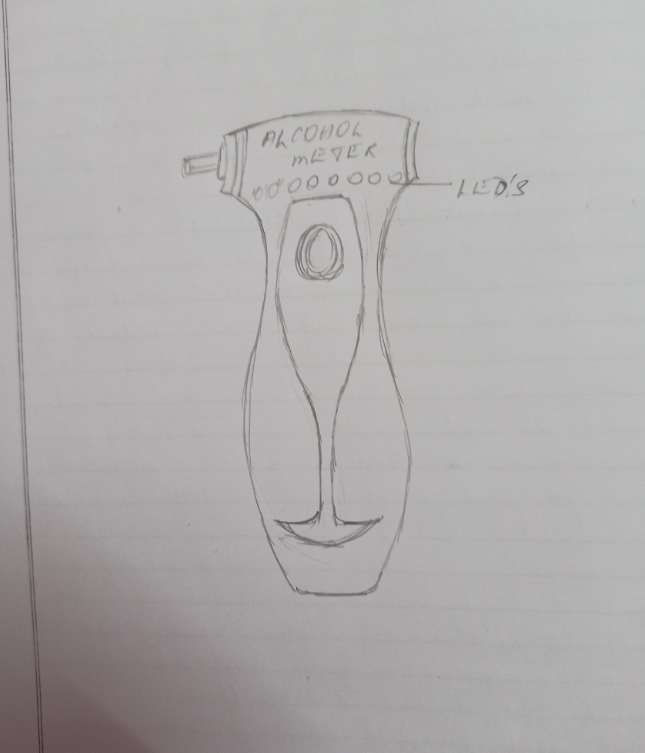 ALCOHOL
mETER
LED'S